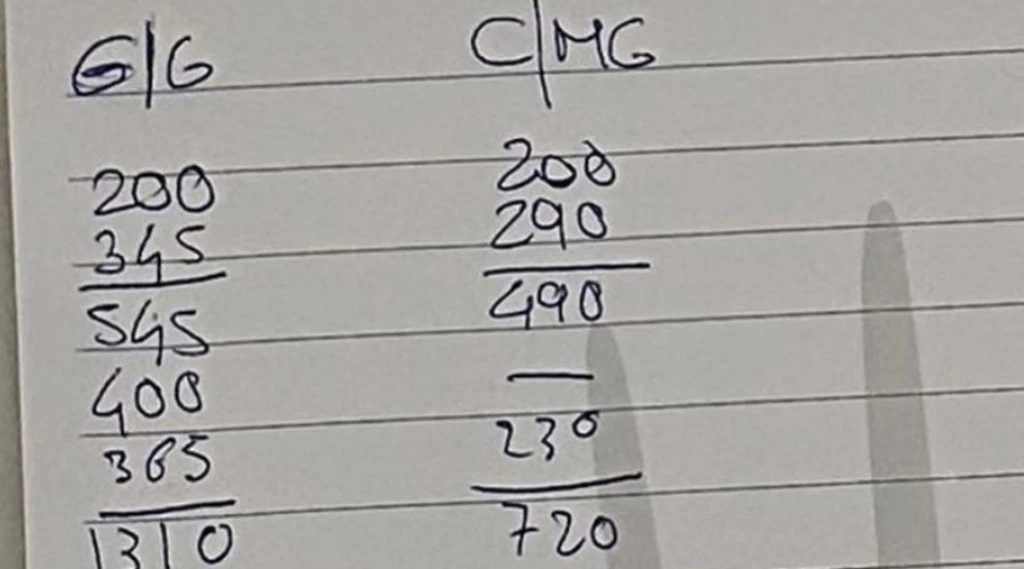 G/G C/MG
200 200
345 290
545 490
400 —
365 230
1310 720